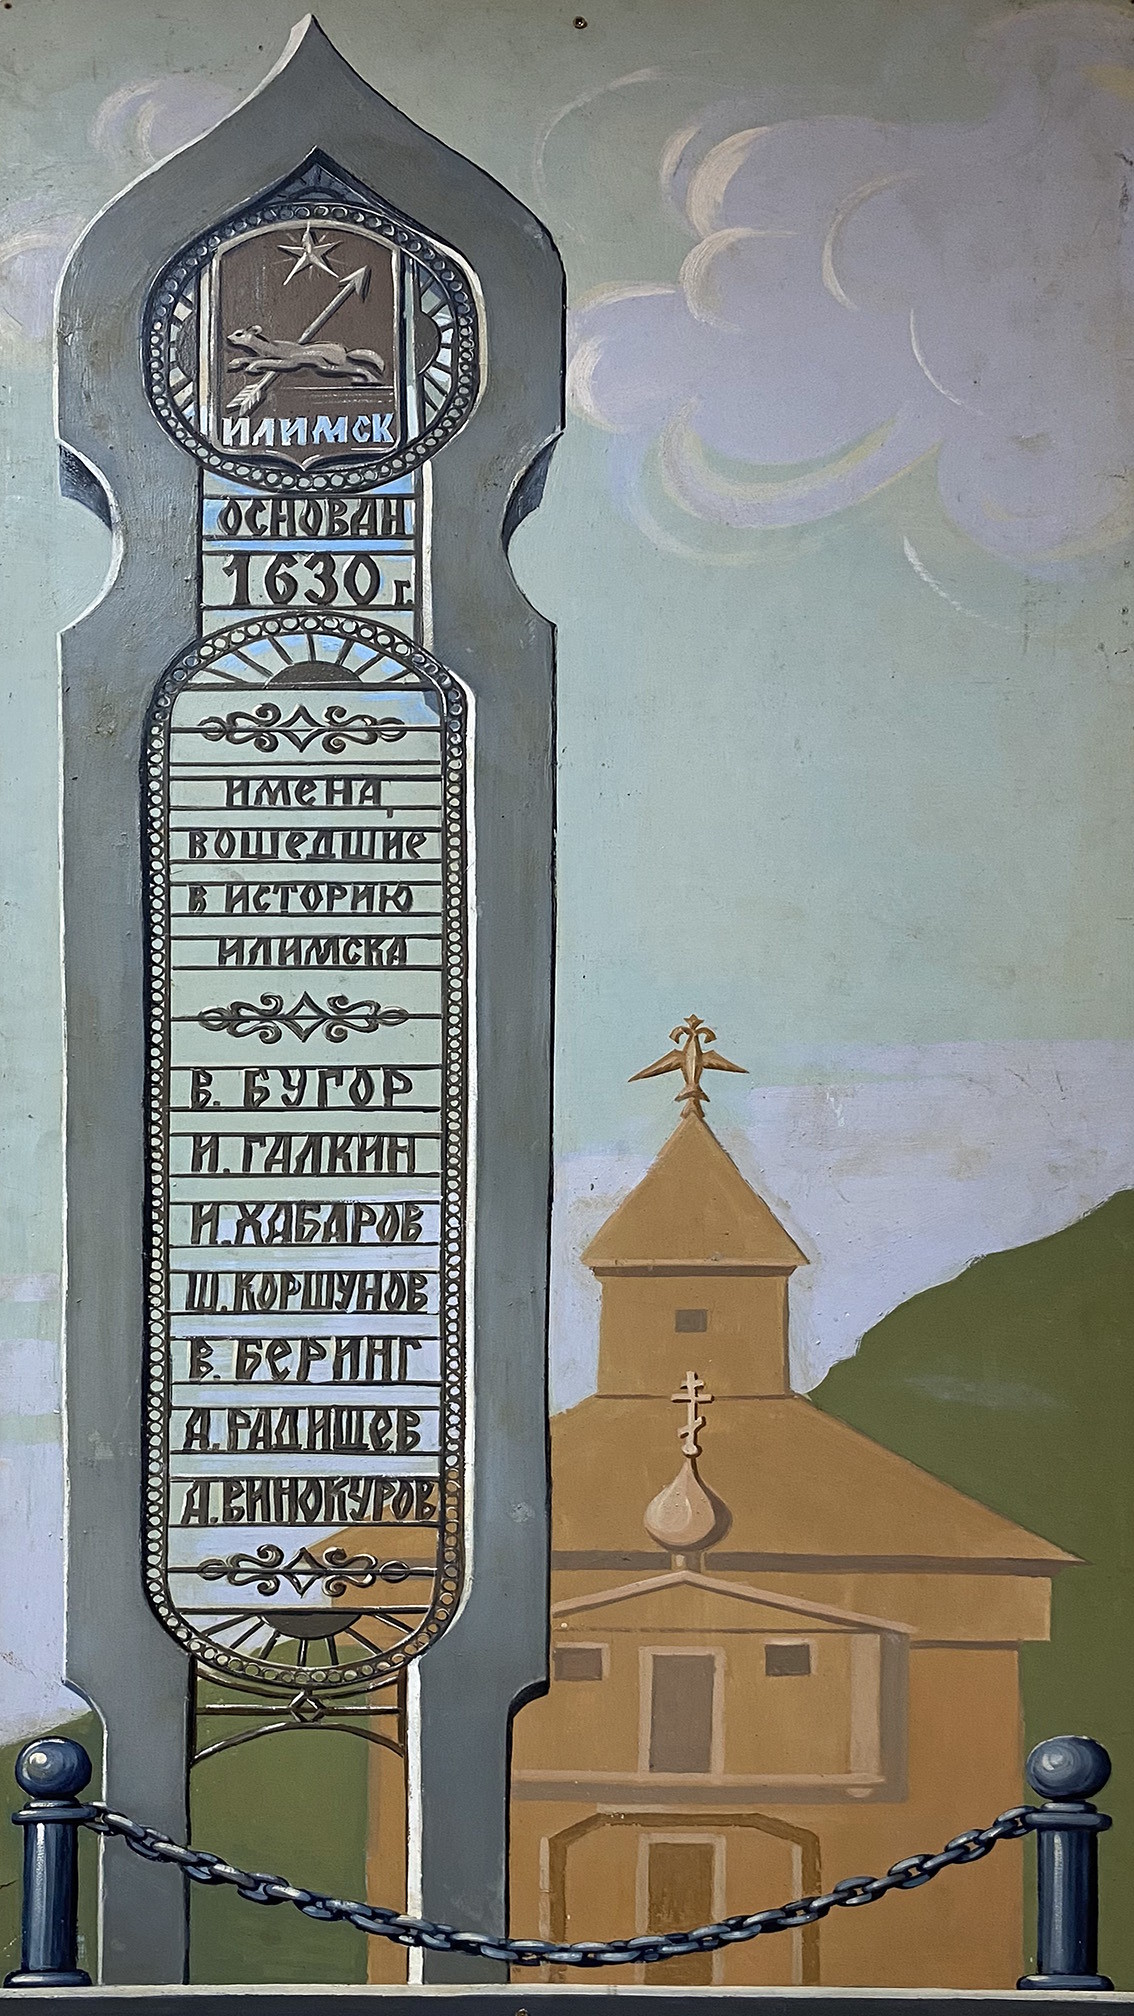 ИЛИМСК
ОСНОВАН
1630 г.
ИМЕНА,
ВОШЕДШИЕ
В ИСТОРИЮ
ИЛИМСКА
В. БУГОР
И. ГАЛКИН
И. ХАБАРОВ
Ш. КОРШУНОВ
В. БЕРИНГ
А. РАДИЩЕВ
А. ВИНОКУРОВ